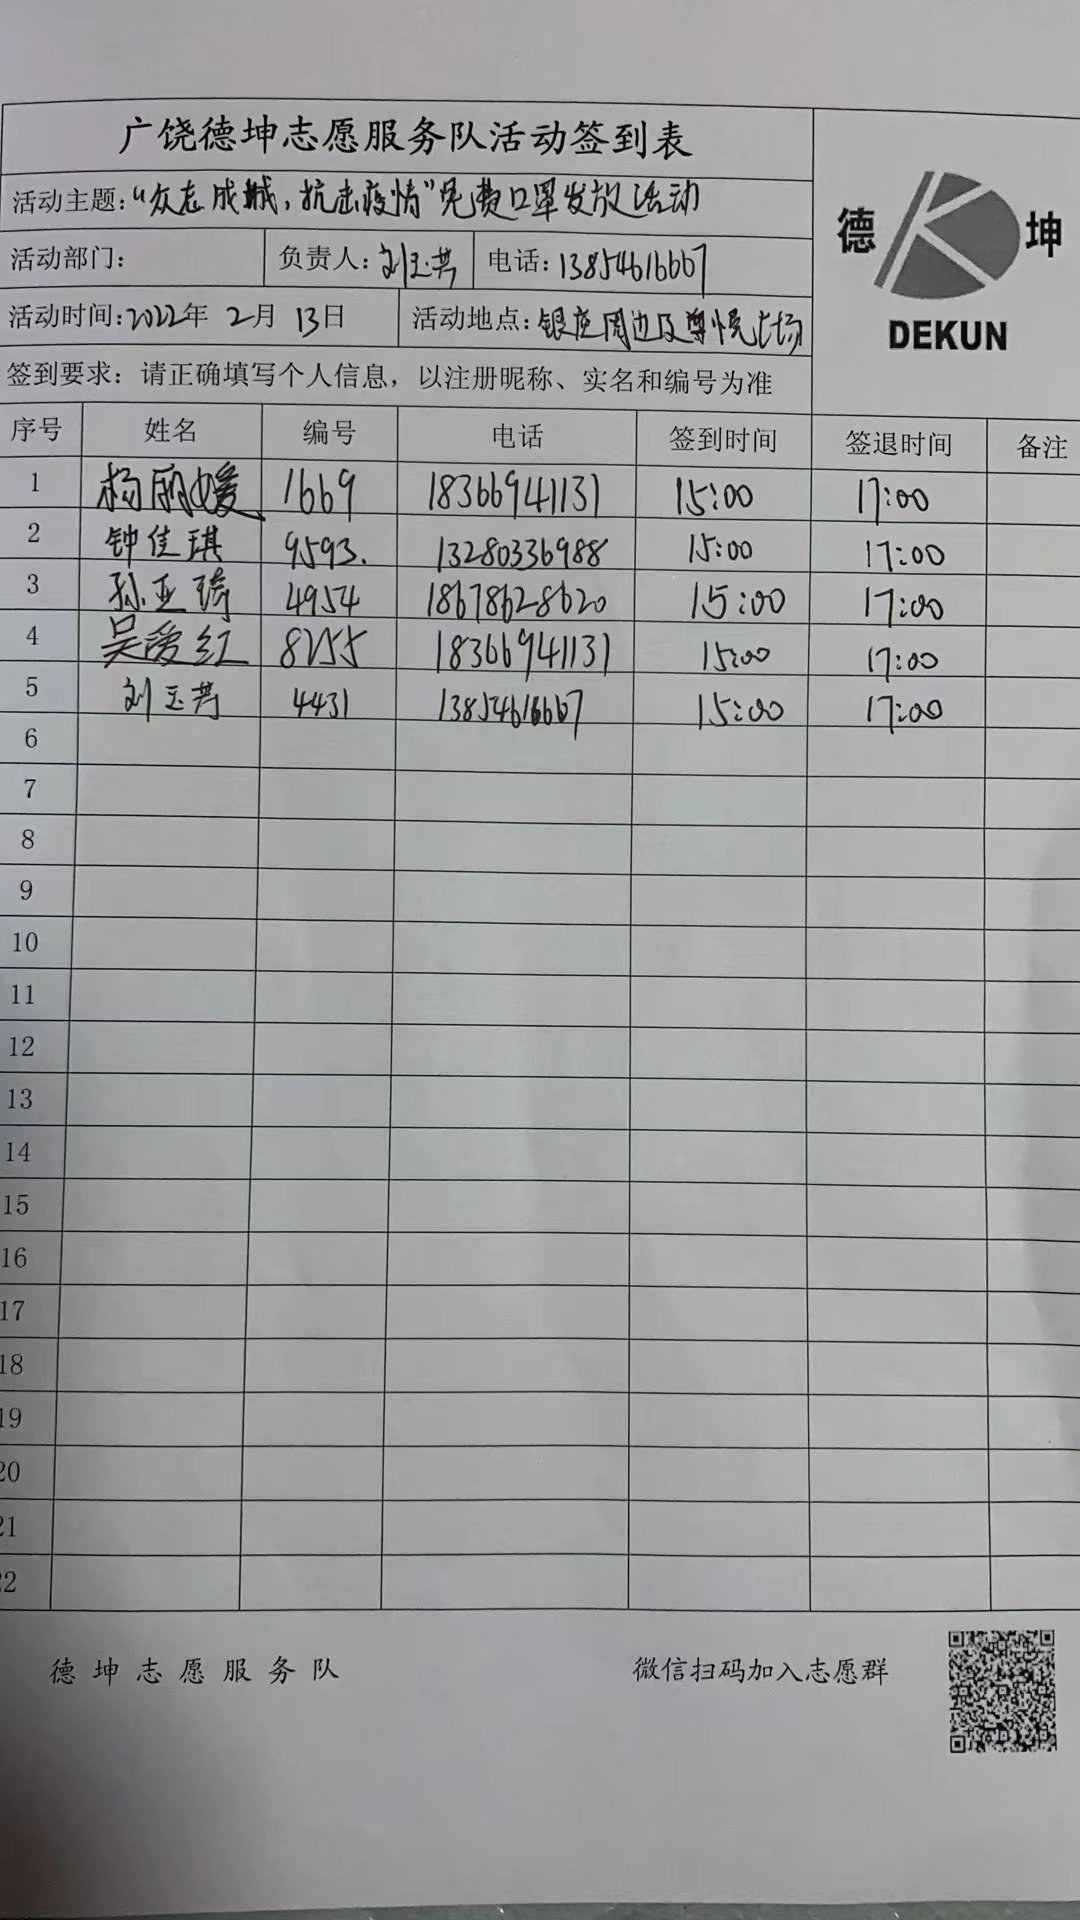 广饶德坤志愿服务队活动签到表
活动主题：“众志成城，抗击疫情”免费口罩发放活动
德 坤
DEKUN
活动部门： 负责人：刘玉芸 电话：13854616667
活动时间：2022年 2月 13日 活动地点：银座周边及尊悦广场
签到要求：请正确填写个人信息，以注册昵称、实名和编号为准
序号 姓名 编号 电话 签到时间 签退时间 备注
1 杨丽媛 1669 18366941131 15:00 17:00
2 钟佳琪 9593. 13280336988 15:00 17:00
3 孙亚琦 4954 18678628620 15:00 17:00
4 吴爱红 8255 18366941131 15:00 17:00
5 刘玉芸 4431 13854616667 15:00 17:00
6
7
8
9
10
11
12
13
14
15
16
17
18
19
20
21
22
德坤志愿服务队 微信扫码加入志愿群